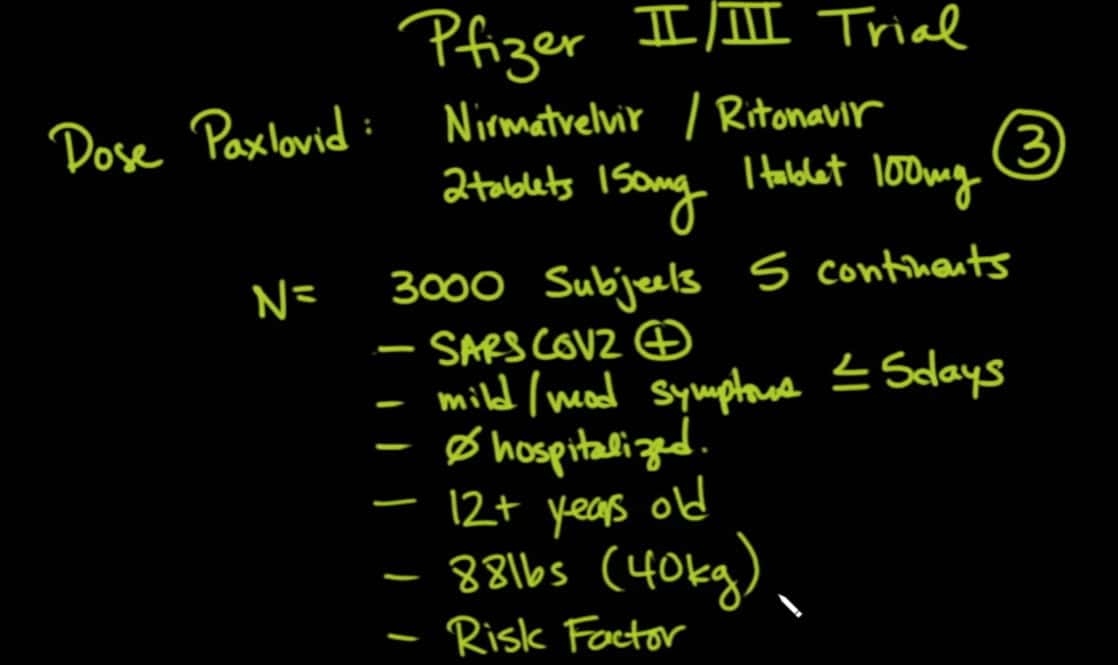 Pfizer II/III Trial
Dose Paxlovid: Nirmatrelvir / Ritonavir
2 tablets 150mg 1 tablet 100mg 3
N= 3000 Subjects 5 continents
- SARS COV2 +
- mild/mod symptoms ≤ 5days
- Ø hospitalized.
- 12+ years old
- 88lbs (40kg)
- Risk Factor